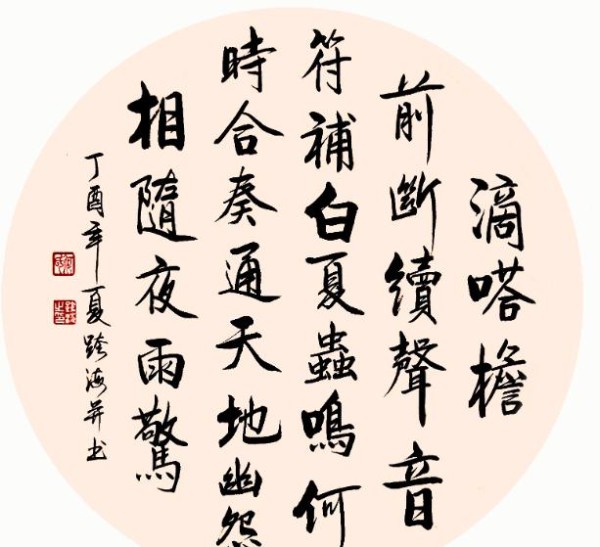 滴嗒檐
前斷續聲音
符補白夏蟲鳴何
時合奏通天地幽怨
相隨夜雨驚
丁酉年夏跨海并书